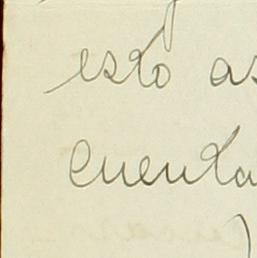 esto as
cuenta